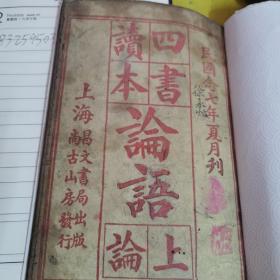 民國廿七年夏月刊
四書
讀本
論語
上論
上海
昌文書局出版
尚古山房發行